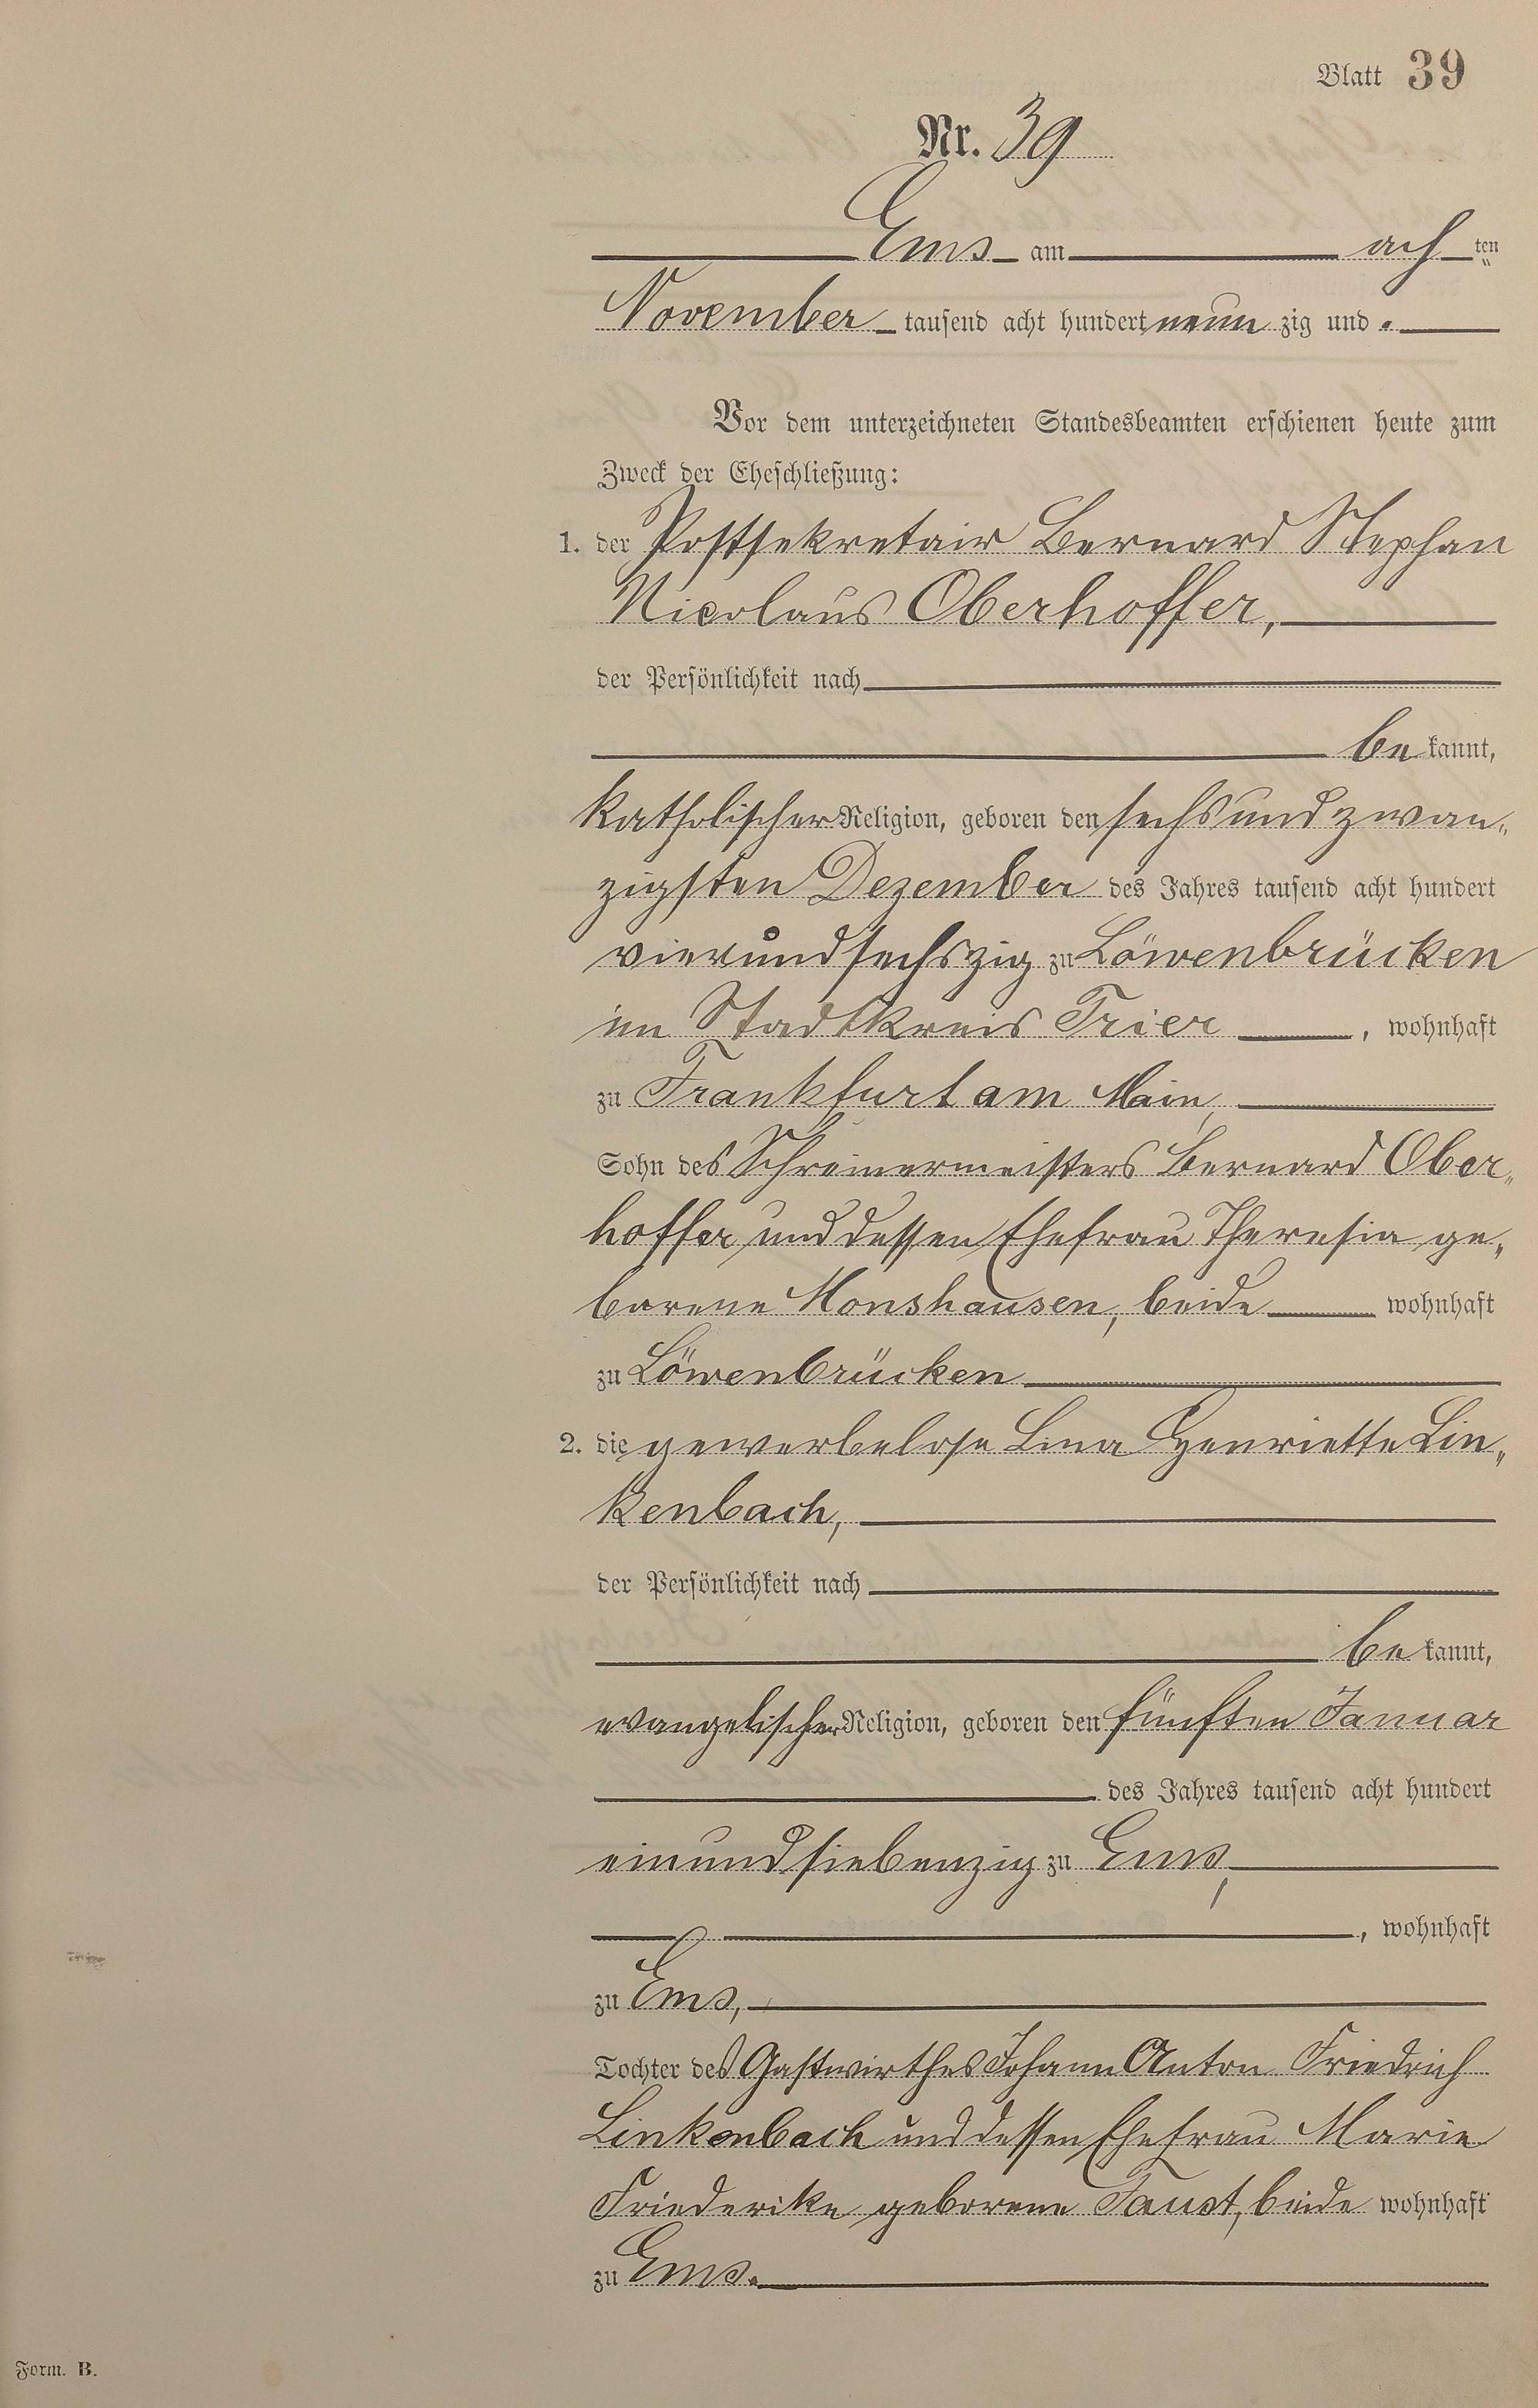 Blatt 39
Nr. 39
Ems am ach ten
November tausend acht hundert neun zig und .
Vor dem unterzeichneten Standesbeamten erschienen heute zum
Zweck der Eheschließung:
1. der Postsekretair Bernard Stephan
Nicolaus Oberhoffer,
der Persönlichkeit nach
be kannt,
katholischer Religion, geboren den sechsundzwan„
zigsten Dezember des Jahres tausend acht hundert
vierundsechszig zu Löwenbrücken
im Stadtkreis Trier, wohnhaft
zu Frankfurt am Main,
Sohn des Schreinermeisters Bernard Ober„
hoffer und dessen Ehefrau Theresia ge„
borene Monshausen, beide wohnhaft
zu Löwenbrücken
2. die gewerbelose Lina Henriette Lin„
kenbach,
der Persönlichkeit nach
be kannt,
evangelischer Religion, geboren den fünften Januar
des Jahres tausend acht hundert
einundsiebenzig zu Ems,
, wohnhaft
zu Ems,
Tochter des Gastwirthes Johann Anton Friedrich
Linkenbach und dessen Ehefrau Marie
Friederike geborene Faust, beide wohnhaft
zu Ems.
Form. B.